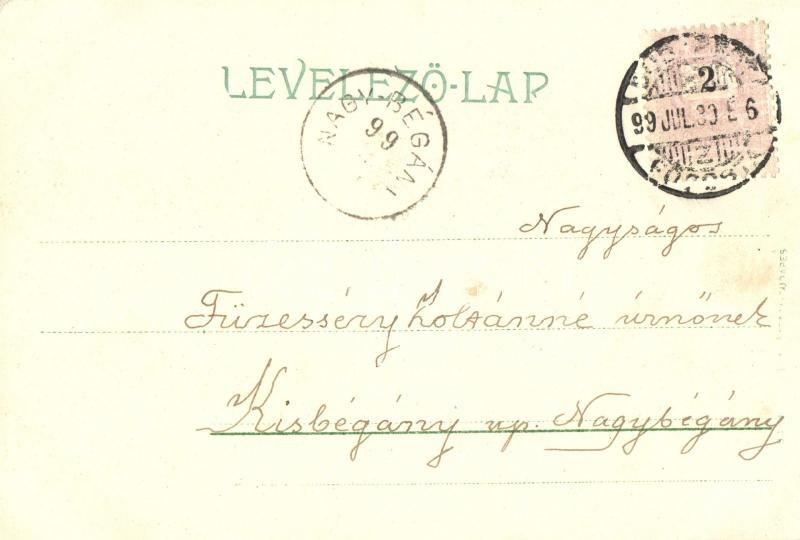 LEVELEZŐ-LAP
NAGY-BÉGÁNY
99
2
99 JUL. 30 E 6
Nagyságos
Füzesséry Zoltánné úrnőnek
Kisbégány up. Nagybégány